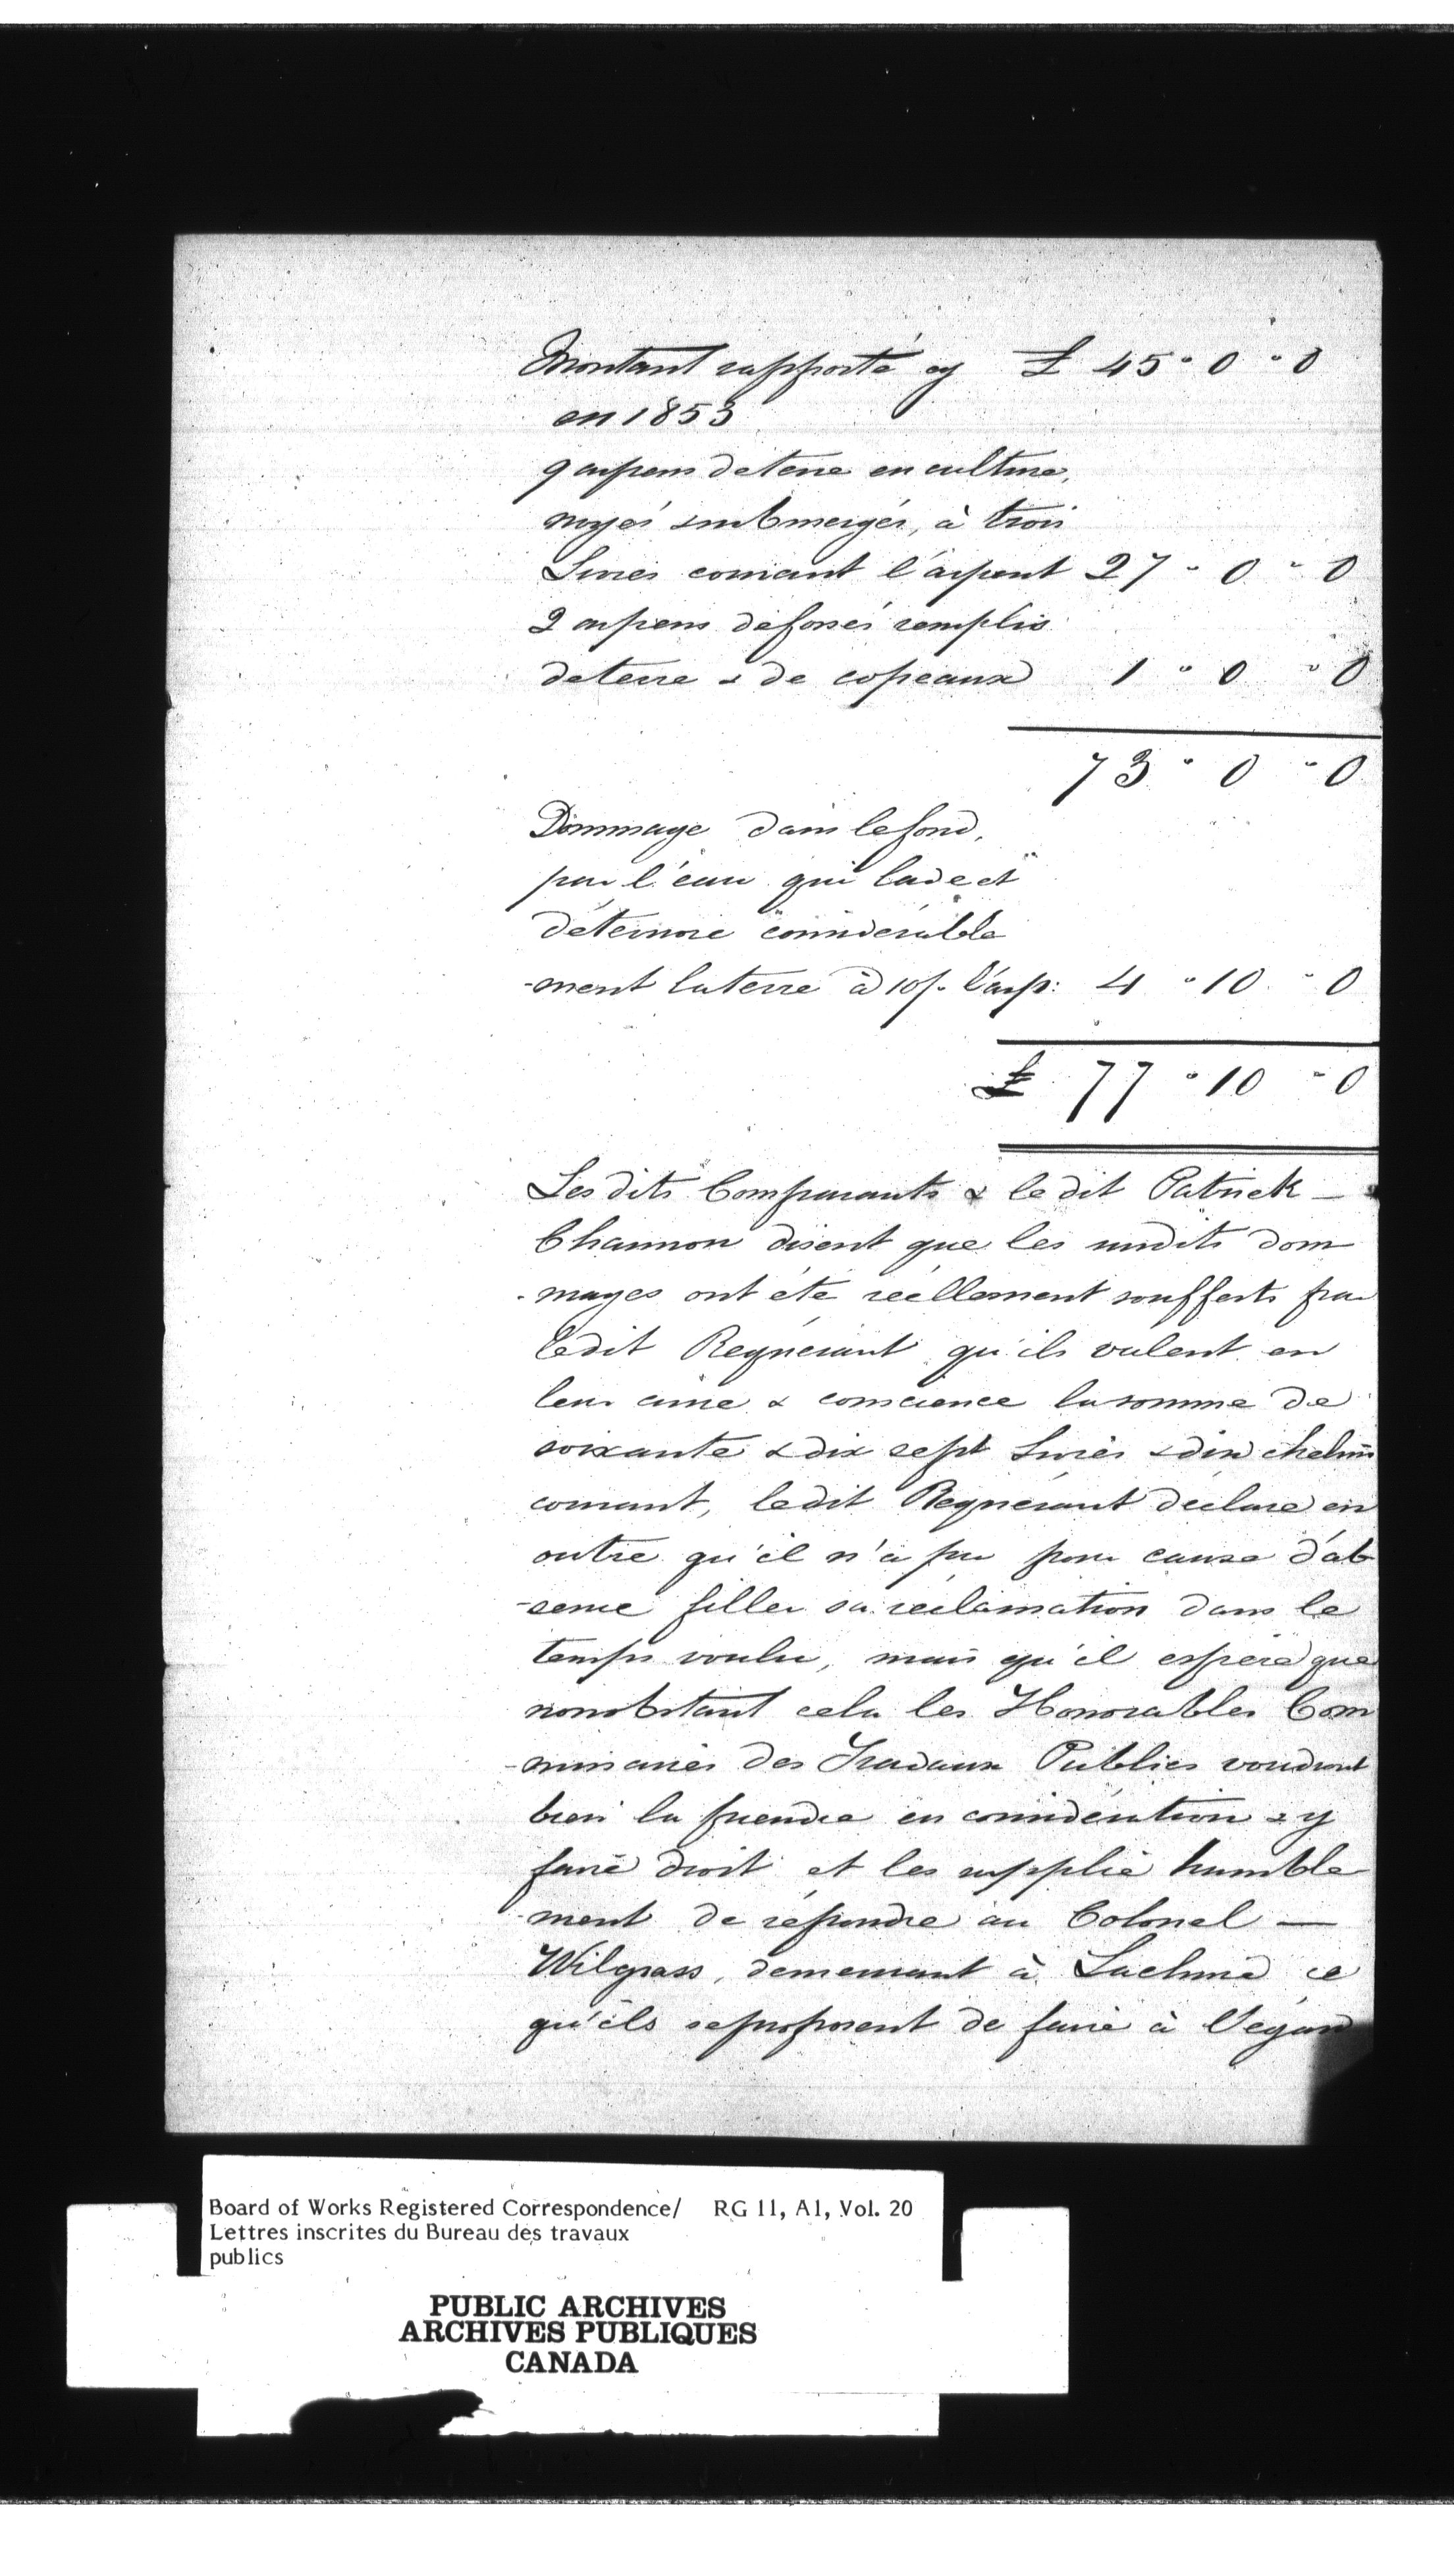 Montant rapporté cy £ 45 " 0 " 0
en 1853
9 arpens de terre en culture,
noyés & submergés, à trois
Livres courant l'arpent 27 " 0 " 0
2 arpens de fossés remplis
de terre & de copeaux 1 " 0 " 0
73 " 0 " 0
Dommage dans le fond,
par l'eau qui lade et
détériore considérable
-ment la terre à 10/- l'arp: 4 " 10 " 0
£ 77 " 10 " 0
Les dits Comparants & le dit Patrick —
Channon disent que les susdits dom
-mages ont été réellement soufferts par
ledit Requérant qu'ils valent en
leur âme & conscience la somme de
soixante & dix sept Livres & dix chelins
courant, ledit Requérant déclare en
outre qu'il n'a pu pour cause d'ab
-sence filler sa réclamation dans le
temps voulu, mais qu'il espère que
nonobstant cela les Honorables Com
-missaires des Travaux Publics voudront
bien la prendre en considération & y
faire droit et les supplie humble
-ment de répondre au Colonel —
Wilgrass, demeurant à Lachine ce
qu'ils se proposent de faire à l'égard
Board of Works Registered Correspondence/ RG 11, A1, Vol. 20
Lettres inscrites du Bureau des travaux
publics
PUBLIC ARCHIVES
ARCHIVES PUBLIQUES
CANADA